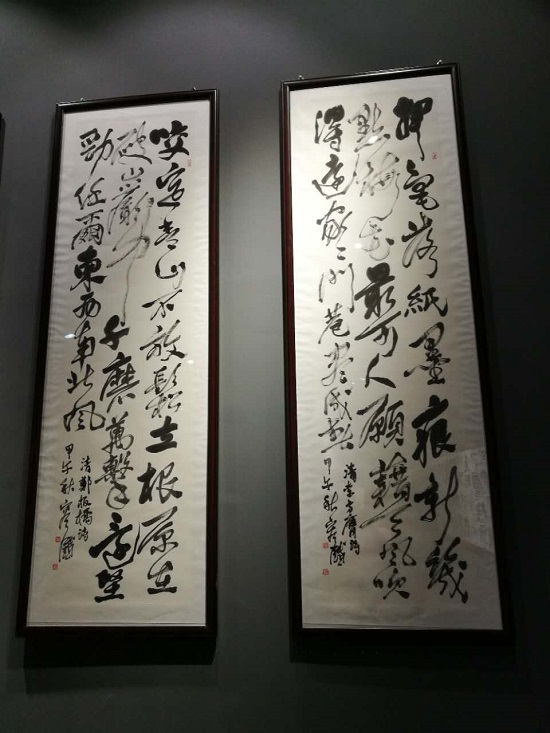 揮毫落紙墨痕新幾
點梅花最可人願藉天風吹
得遠家々門巷盡成春
清李方膺詩
甲午秋
咬定青山不放鬆立根原在
破山巖中千磨萬擊還堅
勁任爾東西南北風
清鄭板橋詩
甲午秋